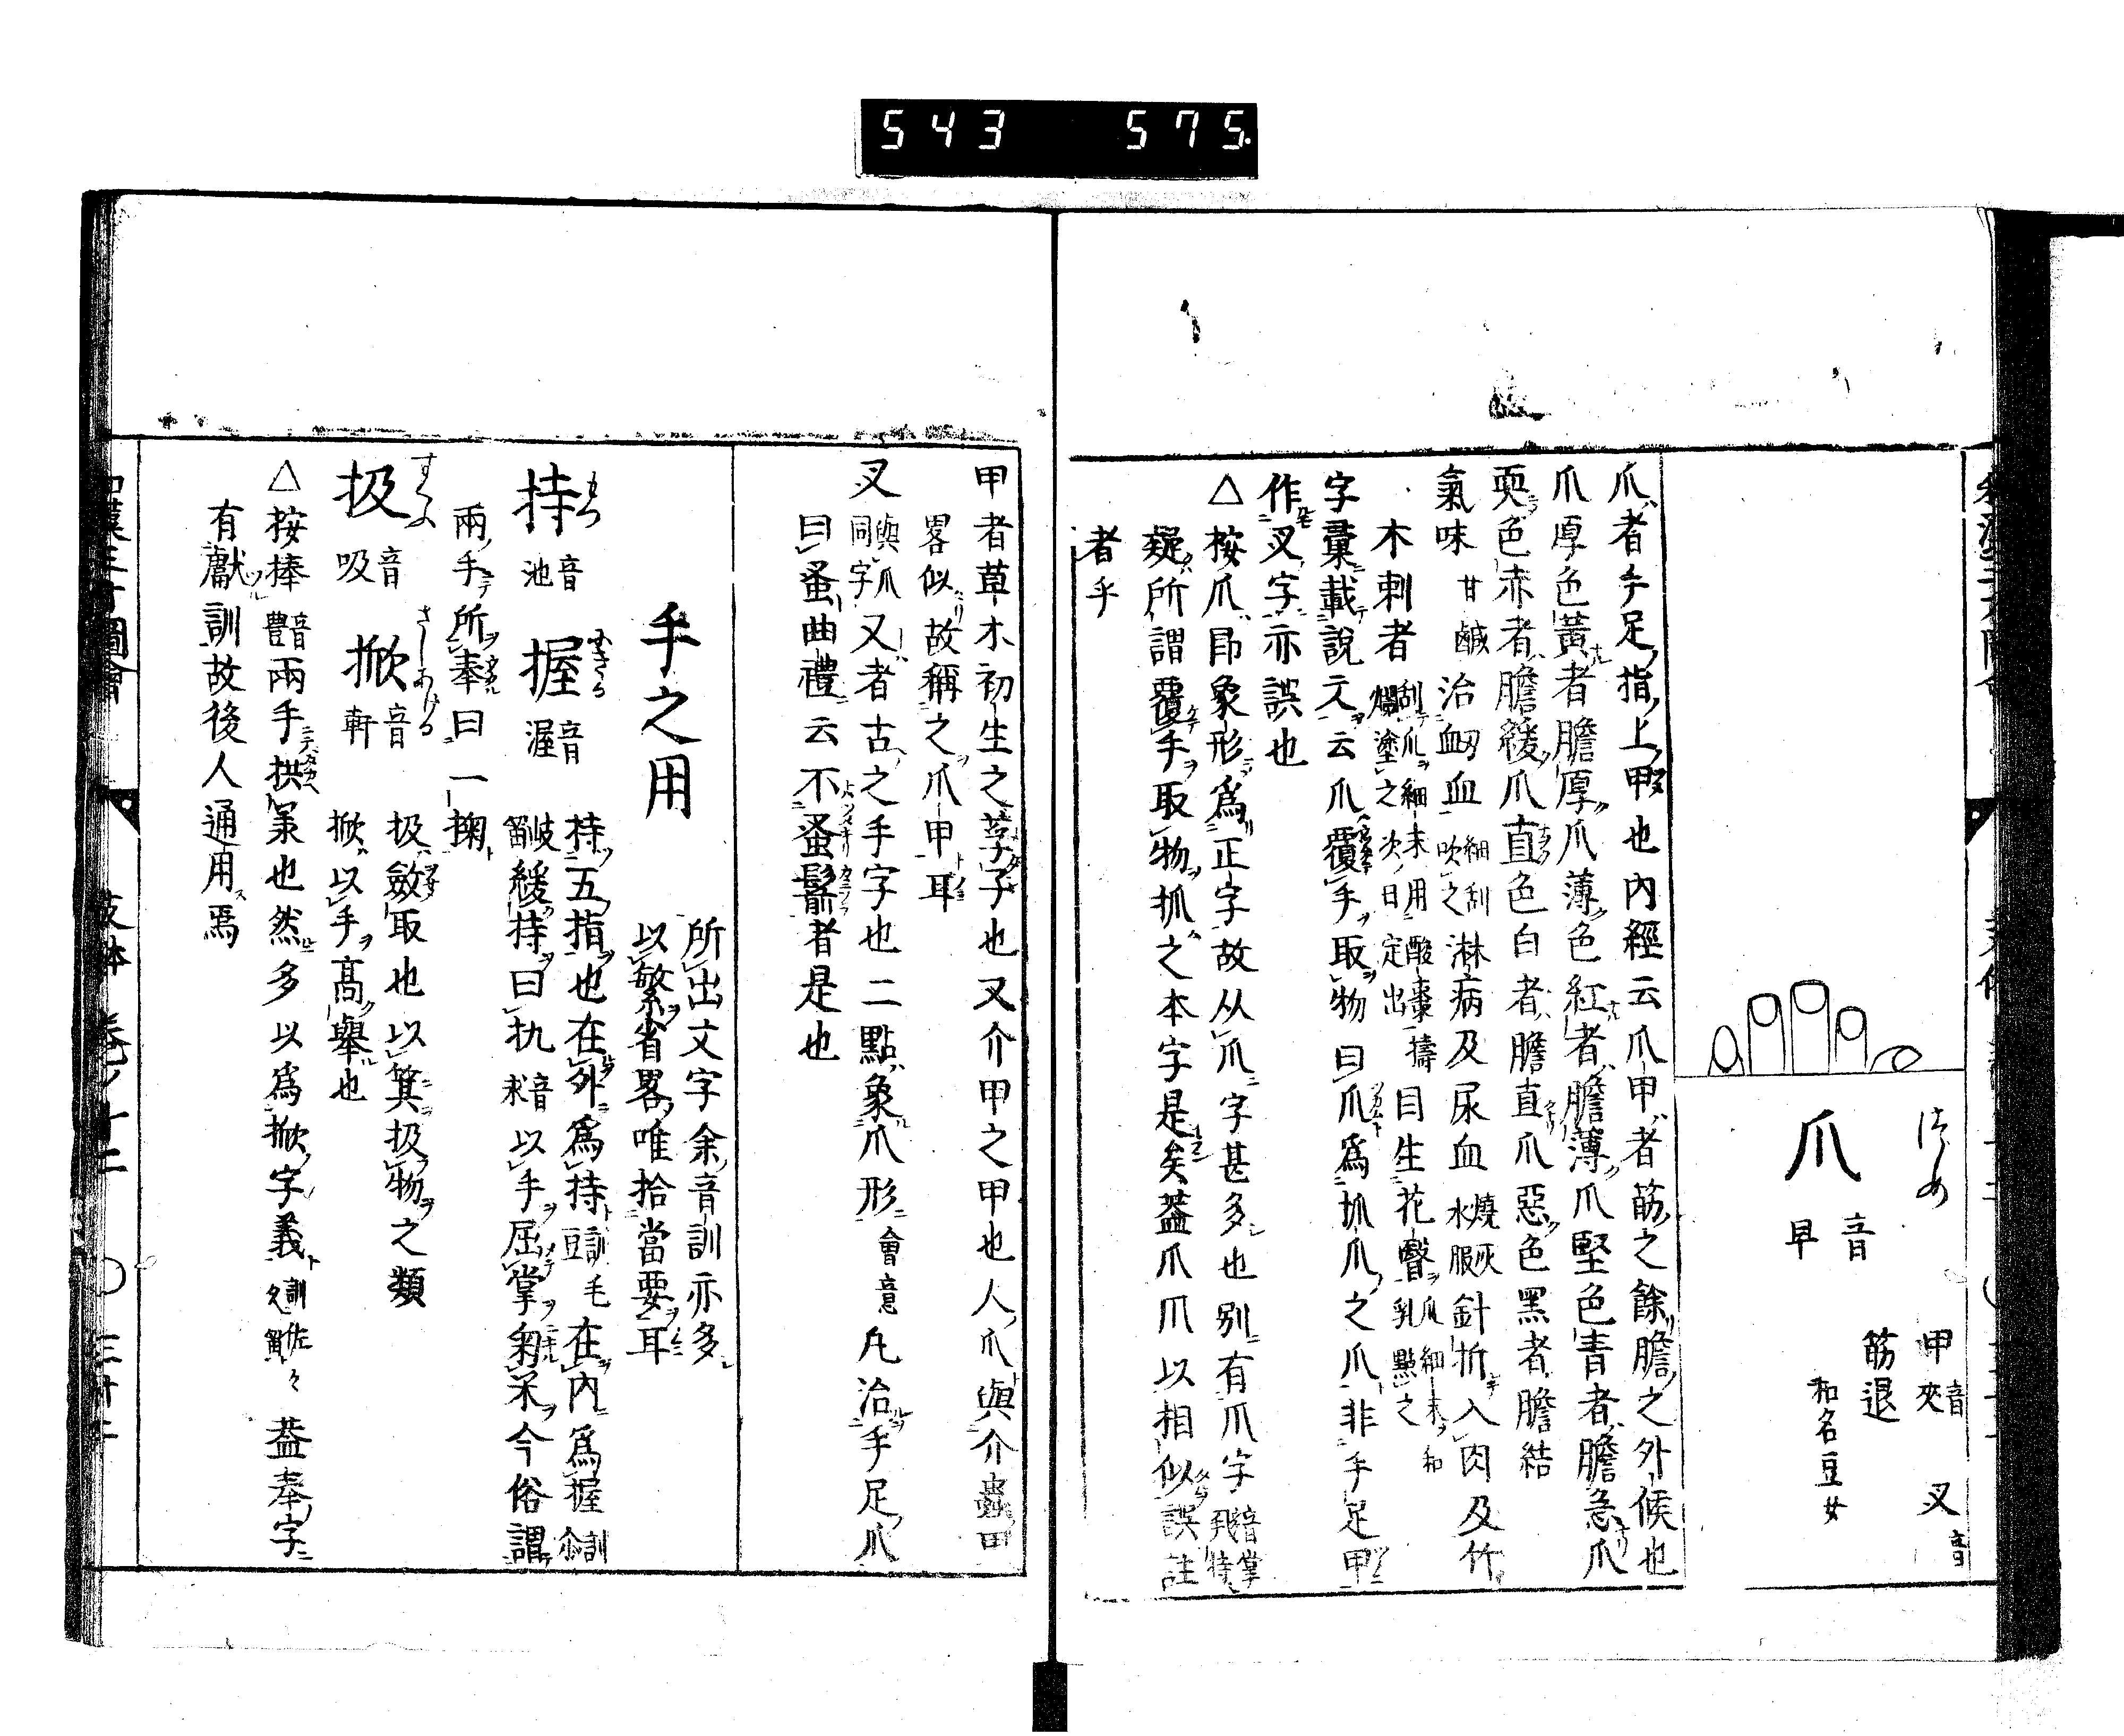 543 575.
つめ
爪
音早
甲
音夾
叉
音
筋退
和名豆女
爪者手足指上甲也內經云爪甲者筋之餘膽之外候也
爪厚色黃者膽厚爪薄色紅者膽薄爪堅色青者膽急爪
耎色赤者膽緩爪直色白者膽直爪惡色黑者膽結
氣味甘鹹治衂血細刮吹之淋病及尿血燒灰水服針折入肉及竹
木刺者刮爪細末用酸棗擣爛塗之次日定出目生花瞖爪細末和乳點之
字彙載說文云爪覆手取物曰爪爲抓爪之爪非手足甲
作叉字亦誤也
△按爪卽象形爲正字故从爪字甚多也別有爪字音掌
疑所謂覆手取物抓之本字是矣葢爪爪以相似誤註
者乎
甲者草木初生之莩子也又介甲之甲也人爪與介蟲甲
畧似故稱之爪甲耳
叉與爪同字又者古之手字也二點象爪形會意凡治手足爪
曰蚤曲禮云不蚤鬋者是也
手之用
所出文字余音訓亦多
以繁省畧唯拾當要耳
もつ
持
音池
にぎる
握
音渥
持五指也在外爲持訓毛豆在內爲握訓
緩持曰扏音求以手屈掌匊米今俗謂
兩手所奉曰一掬
すくふ
扱
音吸
さしあげる
掀
音軒
扱斂取也以箕扱物之類
掀以手高舉也
△按捧音豐兩手拱承也然多以爲掀字義葢奉字
有獻訓故後人通用焉
和漢三才圖會
支體 卷ノ十二 〇 三十二